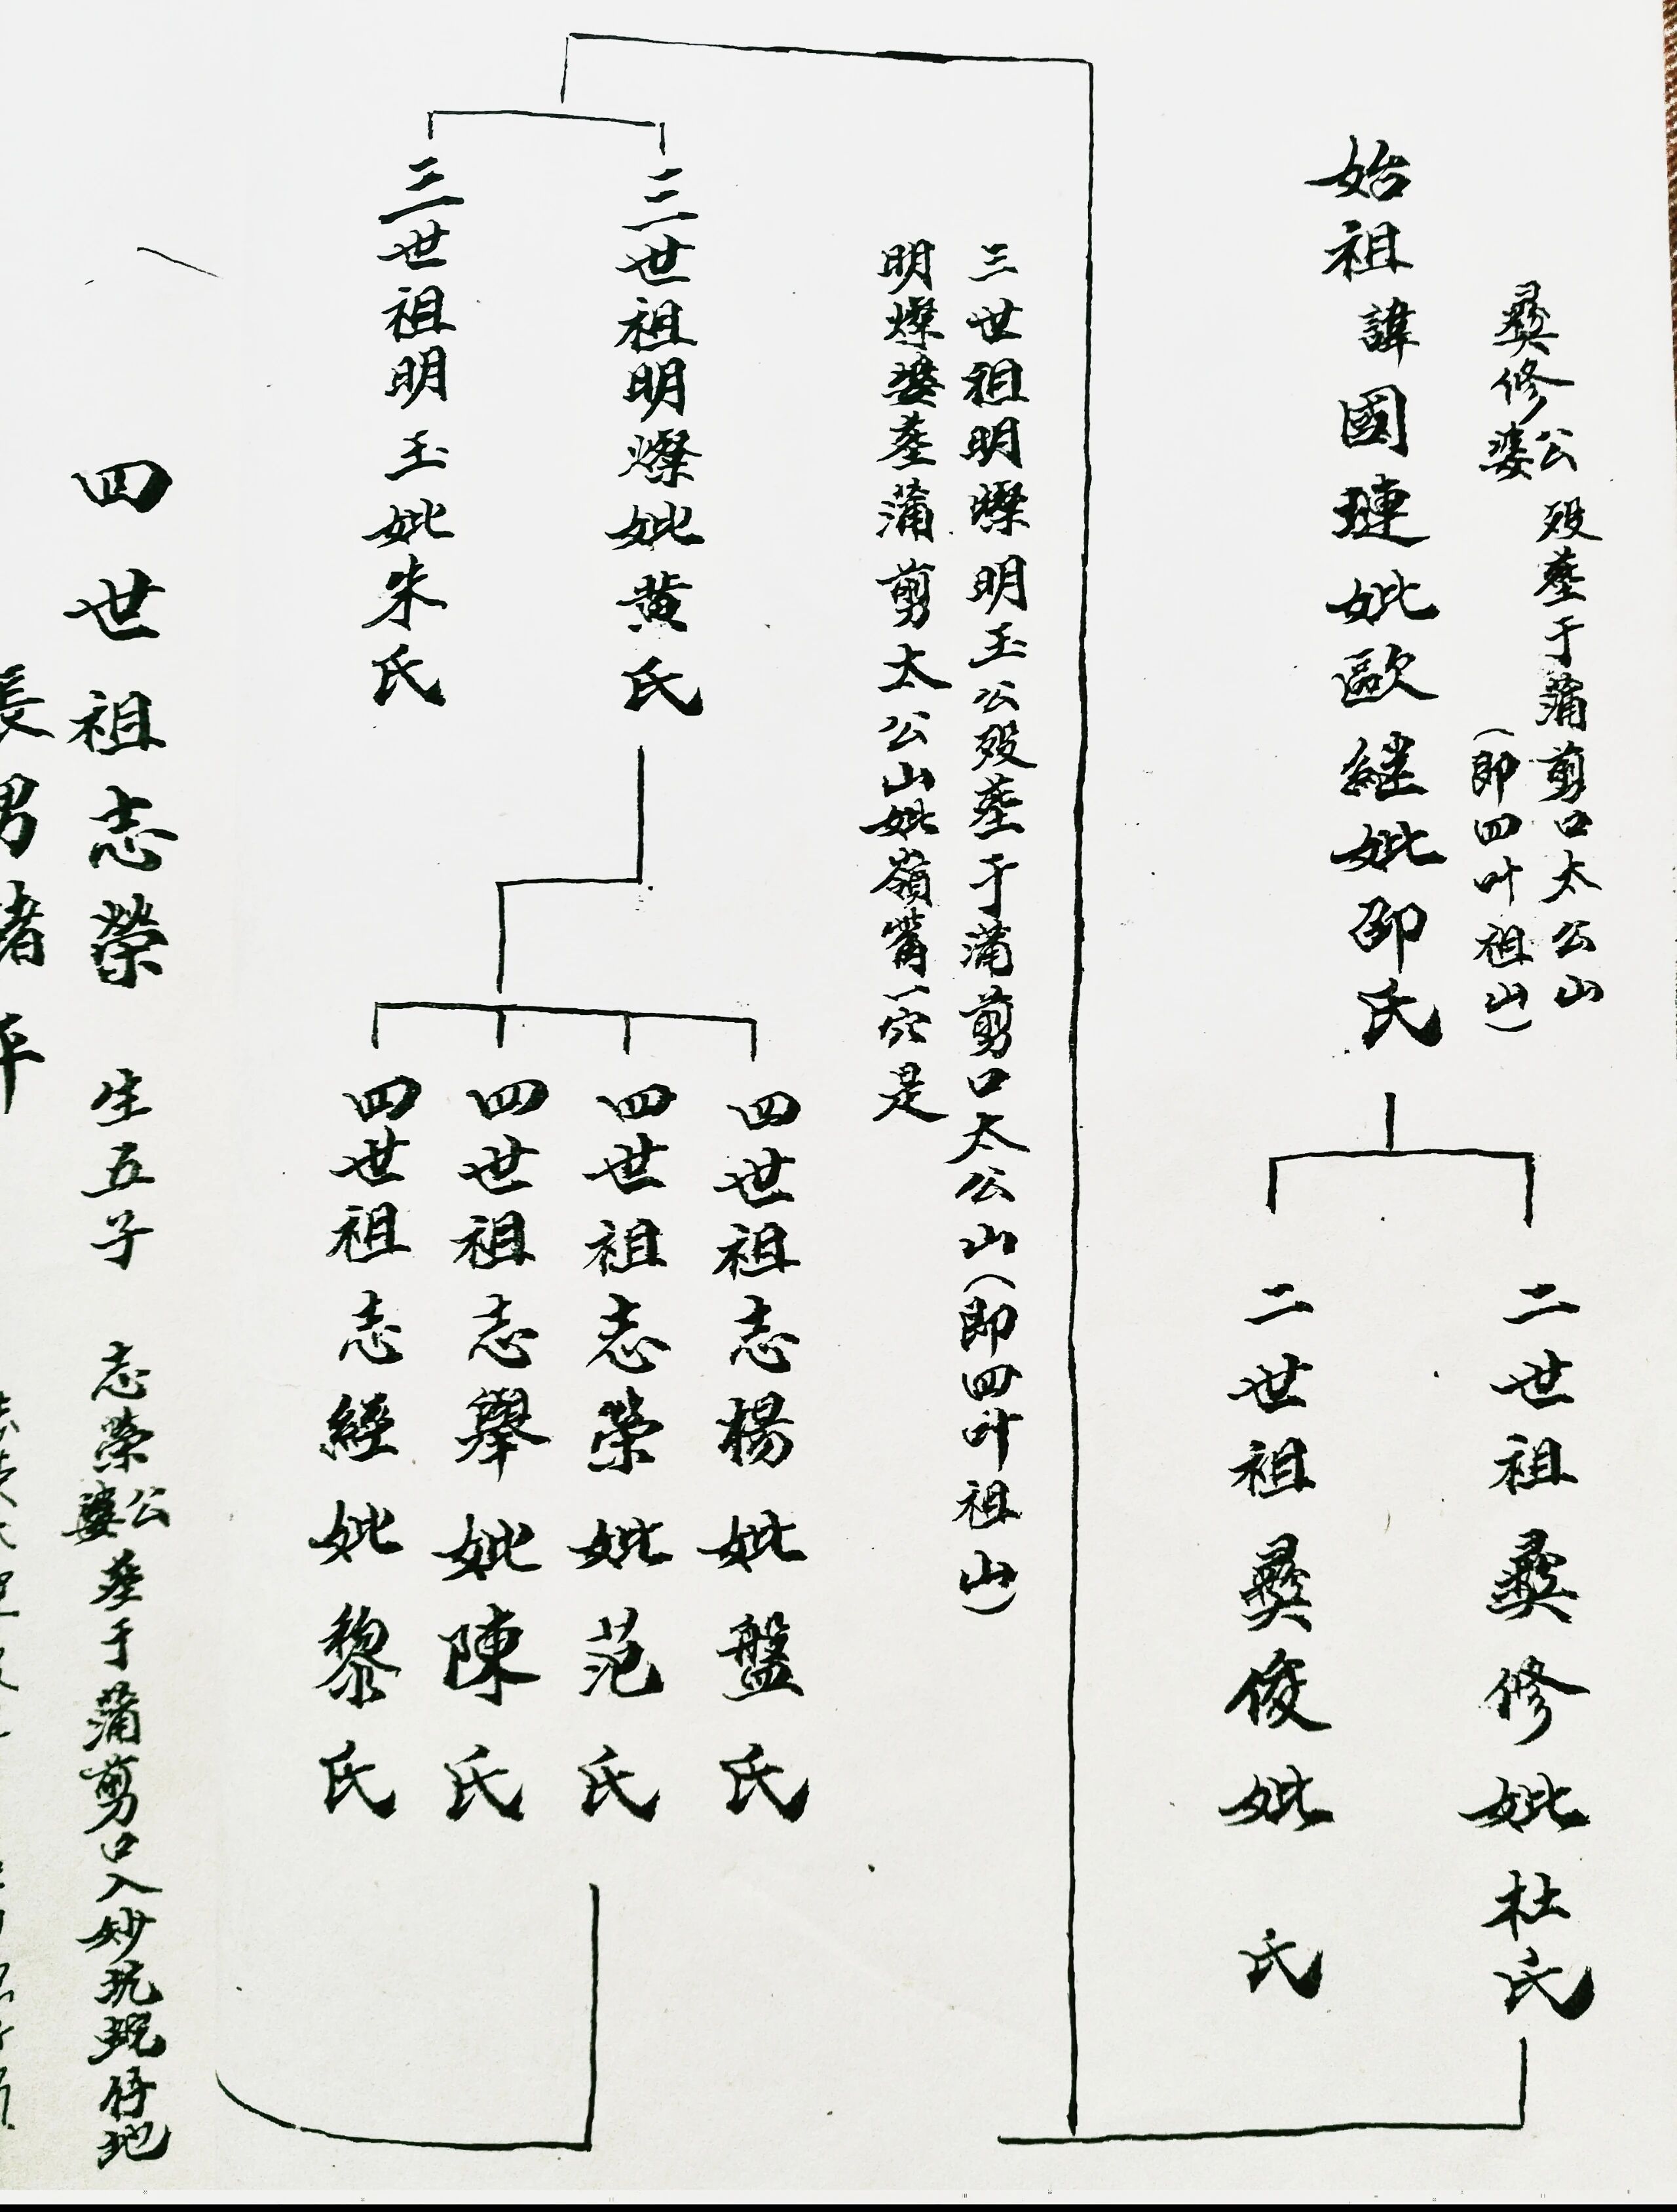 彝修公婆 殁塟于蒲剪口太公山
(即四叶祖山)
始祖諱國璉妣歐継妣邵氏
二世祖彝修妣杜氏
二世祖彝俊妣 氏
三世祖明燦明玉公殁塟于蒲剪口太公山(即四叶祖山)
明燦婆塟蒲剪太公山妣嶺觜一穴是
三世祖明燦妣黄氏
三世祖明玉妣朱氏
四世祖志楊妣盤氏
四世祖志榮妣范氏
四世祖志舉妣陳氏
四世祖志經妣黎氏
四世祖志榮 生五子 志榮公婆塟于蒲剪口入妙坑蚬仔地
長男緒平